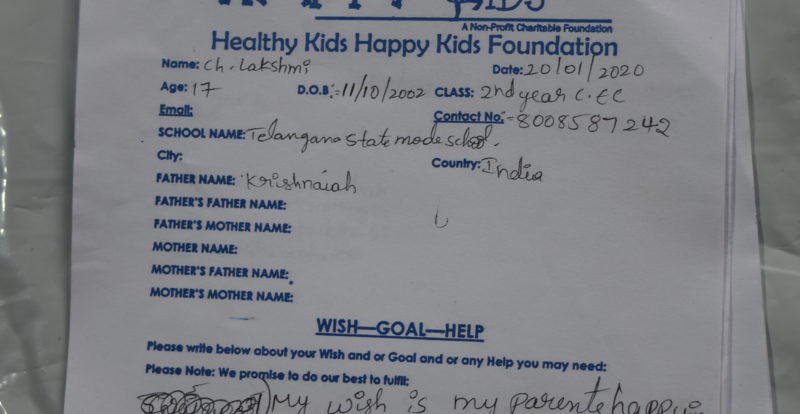 KIDS
A Non-Profit Charitable Foundation
Healthy Kids Happy Kids Foundation
Name: Ch. Lakshmi Date: 20/01/2020
Age: 17 D.O.B: 11/10/2002 CLASS: 2nd year C.EC
Email: Contact No: 8008587242
SCHOOL NAME: Telangana state mode school.
City: Country: India
FATHER NAME: Krishnaiah
FATHER'S FATHER NAME:
FATHER'S MOTHER NAME:
MOTHER NAME:
MOTHER'S FATHER NAME:
MOTHER'S MOTHER NAME:
WISH—GOAL—HELP
Please write below about your Wish and or Goal and or any Help you may need:
Please Note: We promise to do our best to fulfil:
My wish is my parents